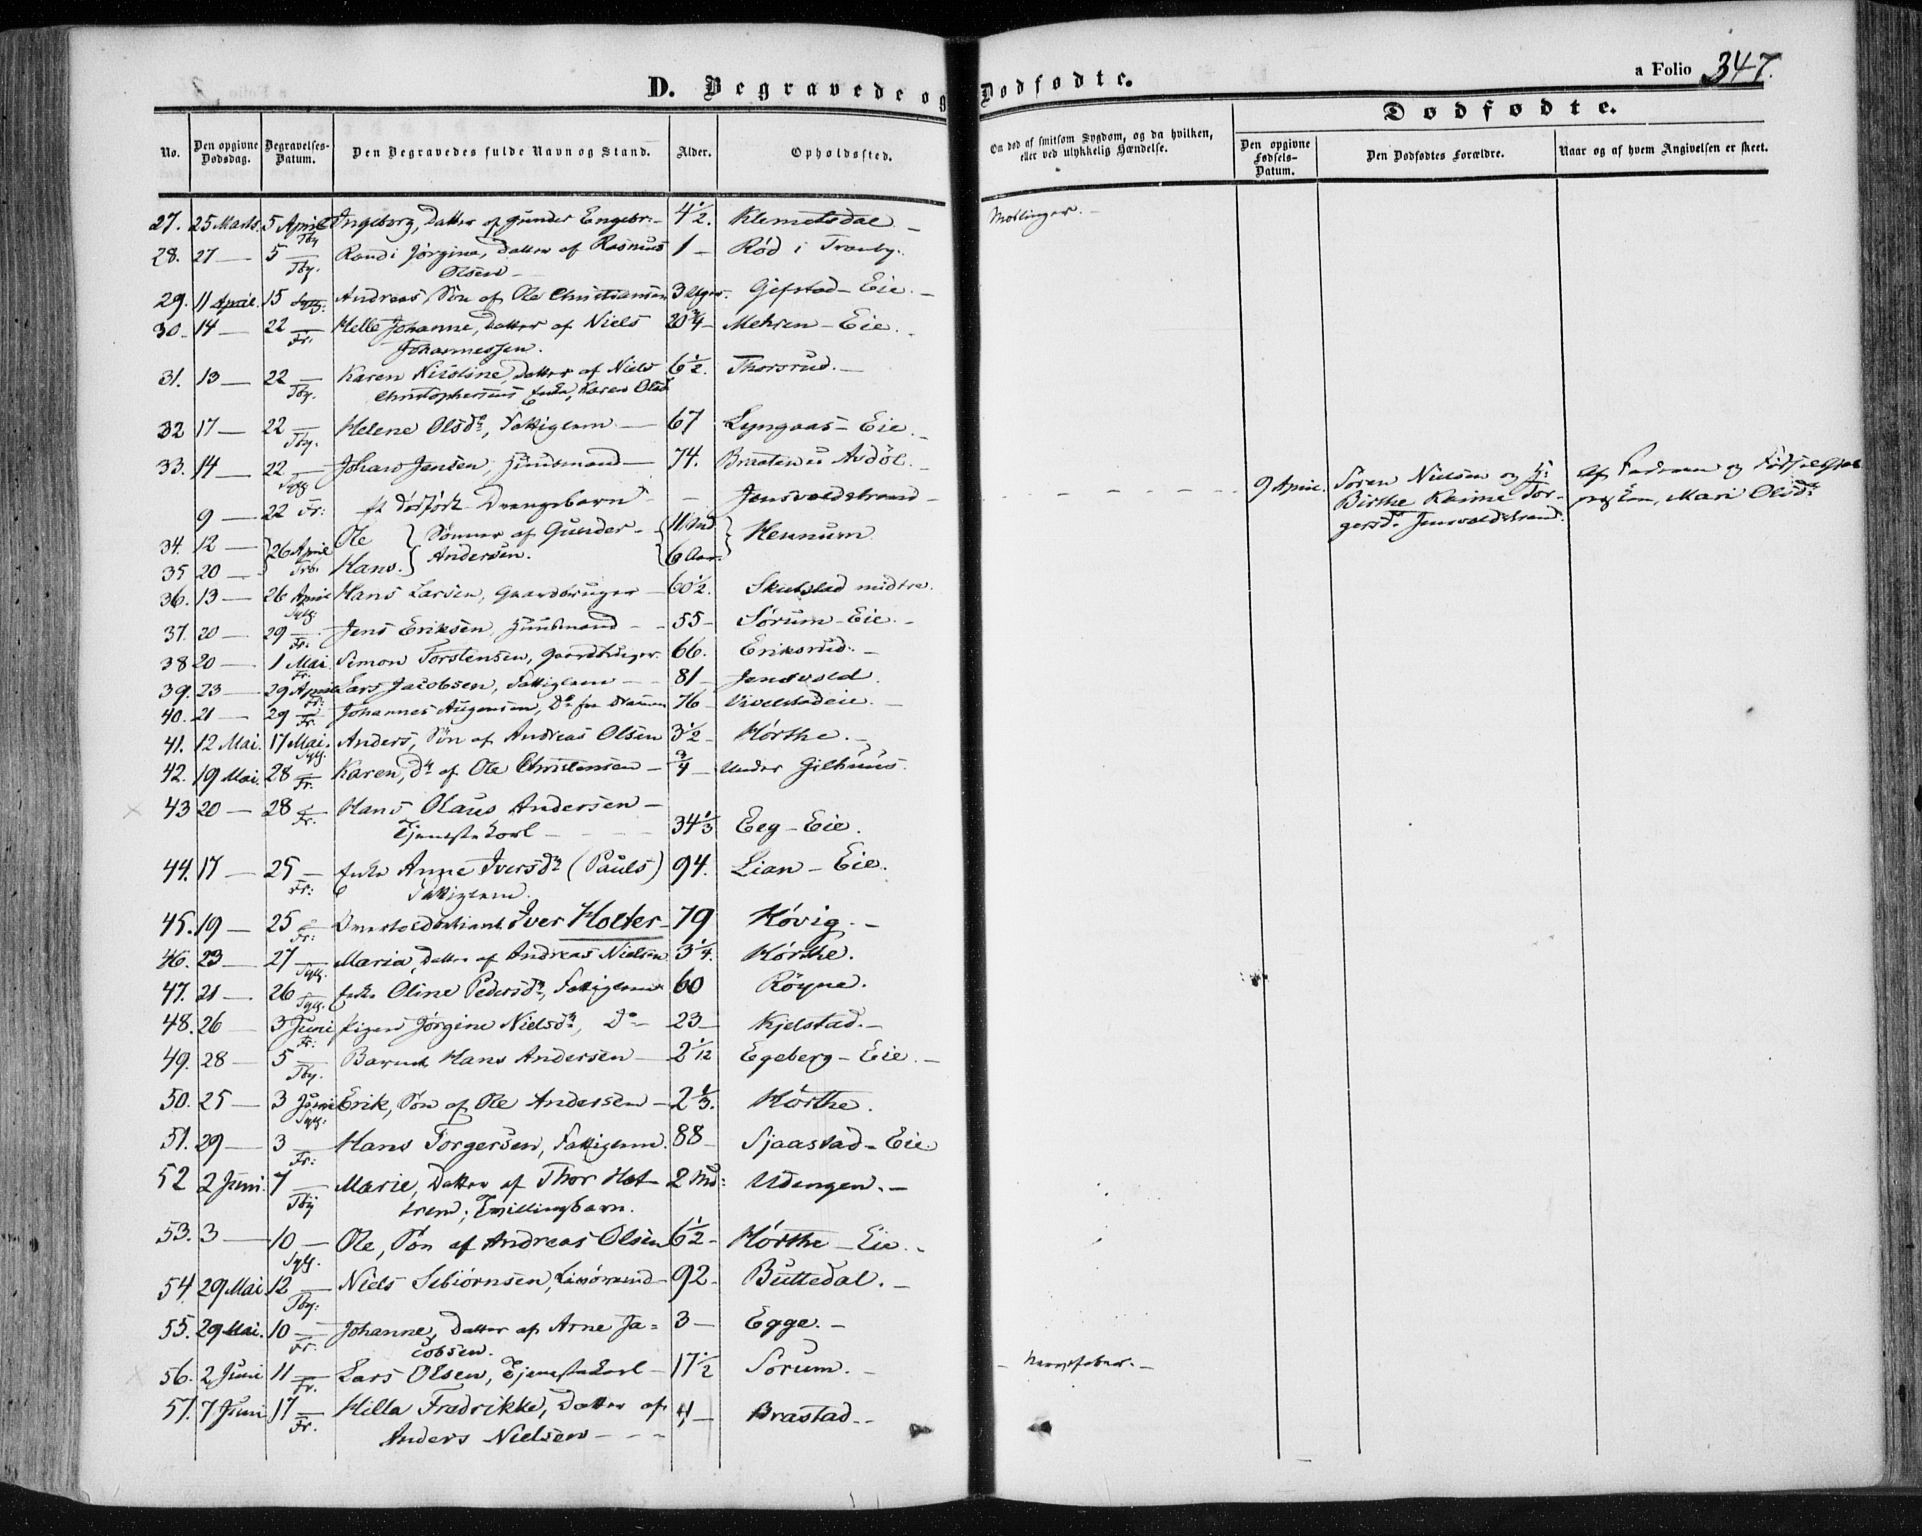 D. Begravede og Dødfødte.
a Folio 347.
Dødfødte.
No.
Den opgivne Dødsdag.
Begravelses-Datum.
Den Begravedes fulde Navn og Stand.
Alder.
Opholdssted.
Om død af smitsom Sygdom, og da hvilken, eller ved ulykkelig Hændelse.
Den opgivne Fødsels-Datum.
Den Dødfødtes Forældre.
Naar og af hvem Angivelsen er skeet.
27. 25 Marts. 5 April Tby Ingeborg, Datter af Gunder Engebr: - 4 1/2. Klemetsdal - Mæslinger. -
28. 27 — 5 — Tby. Randi Jørgine, Datter af Rasmus 1 - Rød i Tranby.
Olsen -
29. 11 April. 15 Sylg. Andreas, Søn af Ole Christiansen 3 Uger. Gifstad - Eie. -
30. 14 — 22 — Fr. Helle Johanne, Datter af Niels 20 3/4 - Mehren - Eie.
Johannessen.
31. 13 — 22 — Tby. Karen Nicoline, Datter af Niels 6 1/2. Thorsrud. -
Christophersens Enke, Karen Olsd
32 17 — 22 — Tby. Helene Olsdr, Fattiglem — 67 Lyngaas - Eie. -
33. 14 — 22 — Sylg Johan Jensen, Huusmand — 74. Braaten u Avdøl. -
9 — 22 Fr: et dødfødt Drengebarn - - Jensvoldstrand - 9 April. Søren Nielsen og H:
Birthe Karine Tor-
gersd. Jensvoldstrand.
af Faderen og
Mari Olsdr
34. 12 — 26 April Ole Sønner af Gunder - 11 Md Hennum
35 20 — Hans. Andersen. 6 Aar.
36. 13 — 26 April Sylg. Hans Larsen, Gaardbruger - 60 1/2. Skulstad midtre.
37. 20 — 29 — Fr. Jens Eriksen, Huusmand - - 55 - Sørum - Eie. -
38 20 — 1 Mai Fr. Simon Torstensen, Gaardbruger. 66. Eriksrud. -
39. 23 — 29 April Fr: Lars Jacobsen, Fattiglem — 81 - Jensvold.
40. 21 — 29 — Fr. Johannes Augensen, Do fra Drammen 76 - Vivelstadeie. -
41. 12 Mai. 17 Mai. Sylg. Anders, Søn af Andreas Olsen 3 1/2 - Hørthe. -
42. 19 Mai. 28 — Fr. Karen, Dr af Ole Christensen - 3/4 - Under Gilhuus.
43 20 — 28 — Fr. Hans Olaus Andersen -
Tjenestekarl - - - 34 1/3 Eeg - Eie.
44. 17 — 25 — Fr: Enke Anne Iversdr (Pauls) 94. Lian - Eie.
Fattiglem.
45. 19 — 25 — Fr: Iver Holter - 79 Høvig. -
46. 23 — 27 — Sylg. Maria, Datter af Andreas Nielsen 3 1/4. Hørthe.
47. 21 — 26 — Sylg. Enke Oline Pedersdr, Fattiglem 60 Røyne.
48. 26 — 3 Juni Fr: Pigen Jørgine Nielsdr, Do - 23 - Kjelstad. -
49. 28 — 5 — Tby. Barnet Hans Andersen — 2 1/12 Egeberg - Eie. -
50. 25 — 3 Juni Sylg. Erik, Søn af Ole Andersen - 2 1/3. Hørthe.
51. 29 — 3 — Fr: Hans Torgersen, Fattiglem. 88 - Sjaastad - Eie.
52 2 Juni. 7 — Tby Marie, Datter af Thor Hot- 2 Md: Udengen. -
trem; Tvillingbarn.
53. 3 — 10 — Sylg. Ole, Søn af Andreas Olsen 6 1/2 - Hørthe - Eie. -
54. 29 Mai 12 — Tby: Niels Sebiørnsen, - 92 - Buttedal. -
55. 29 Mai. 10 — Fr. Johanne, Datter af Arne Ja- 3 - Egge. -
cobsen.
56. 2 Juni 11 — Fr. Lars Olsen, Tjenestekarl - 17 1/2 Sørum. - - Nervefeber. -
57. 7 Juni 17 — Fr. Hilla Fredrikke, Datter af 4 - Brastad. -
Anders Nielsen - - -